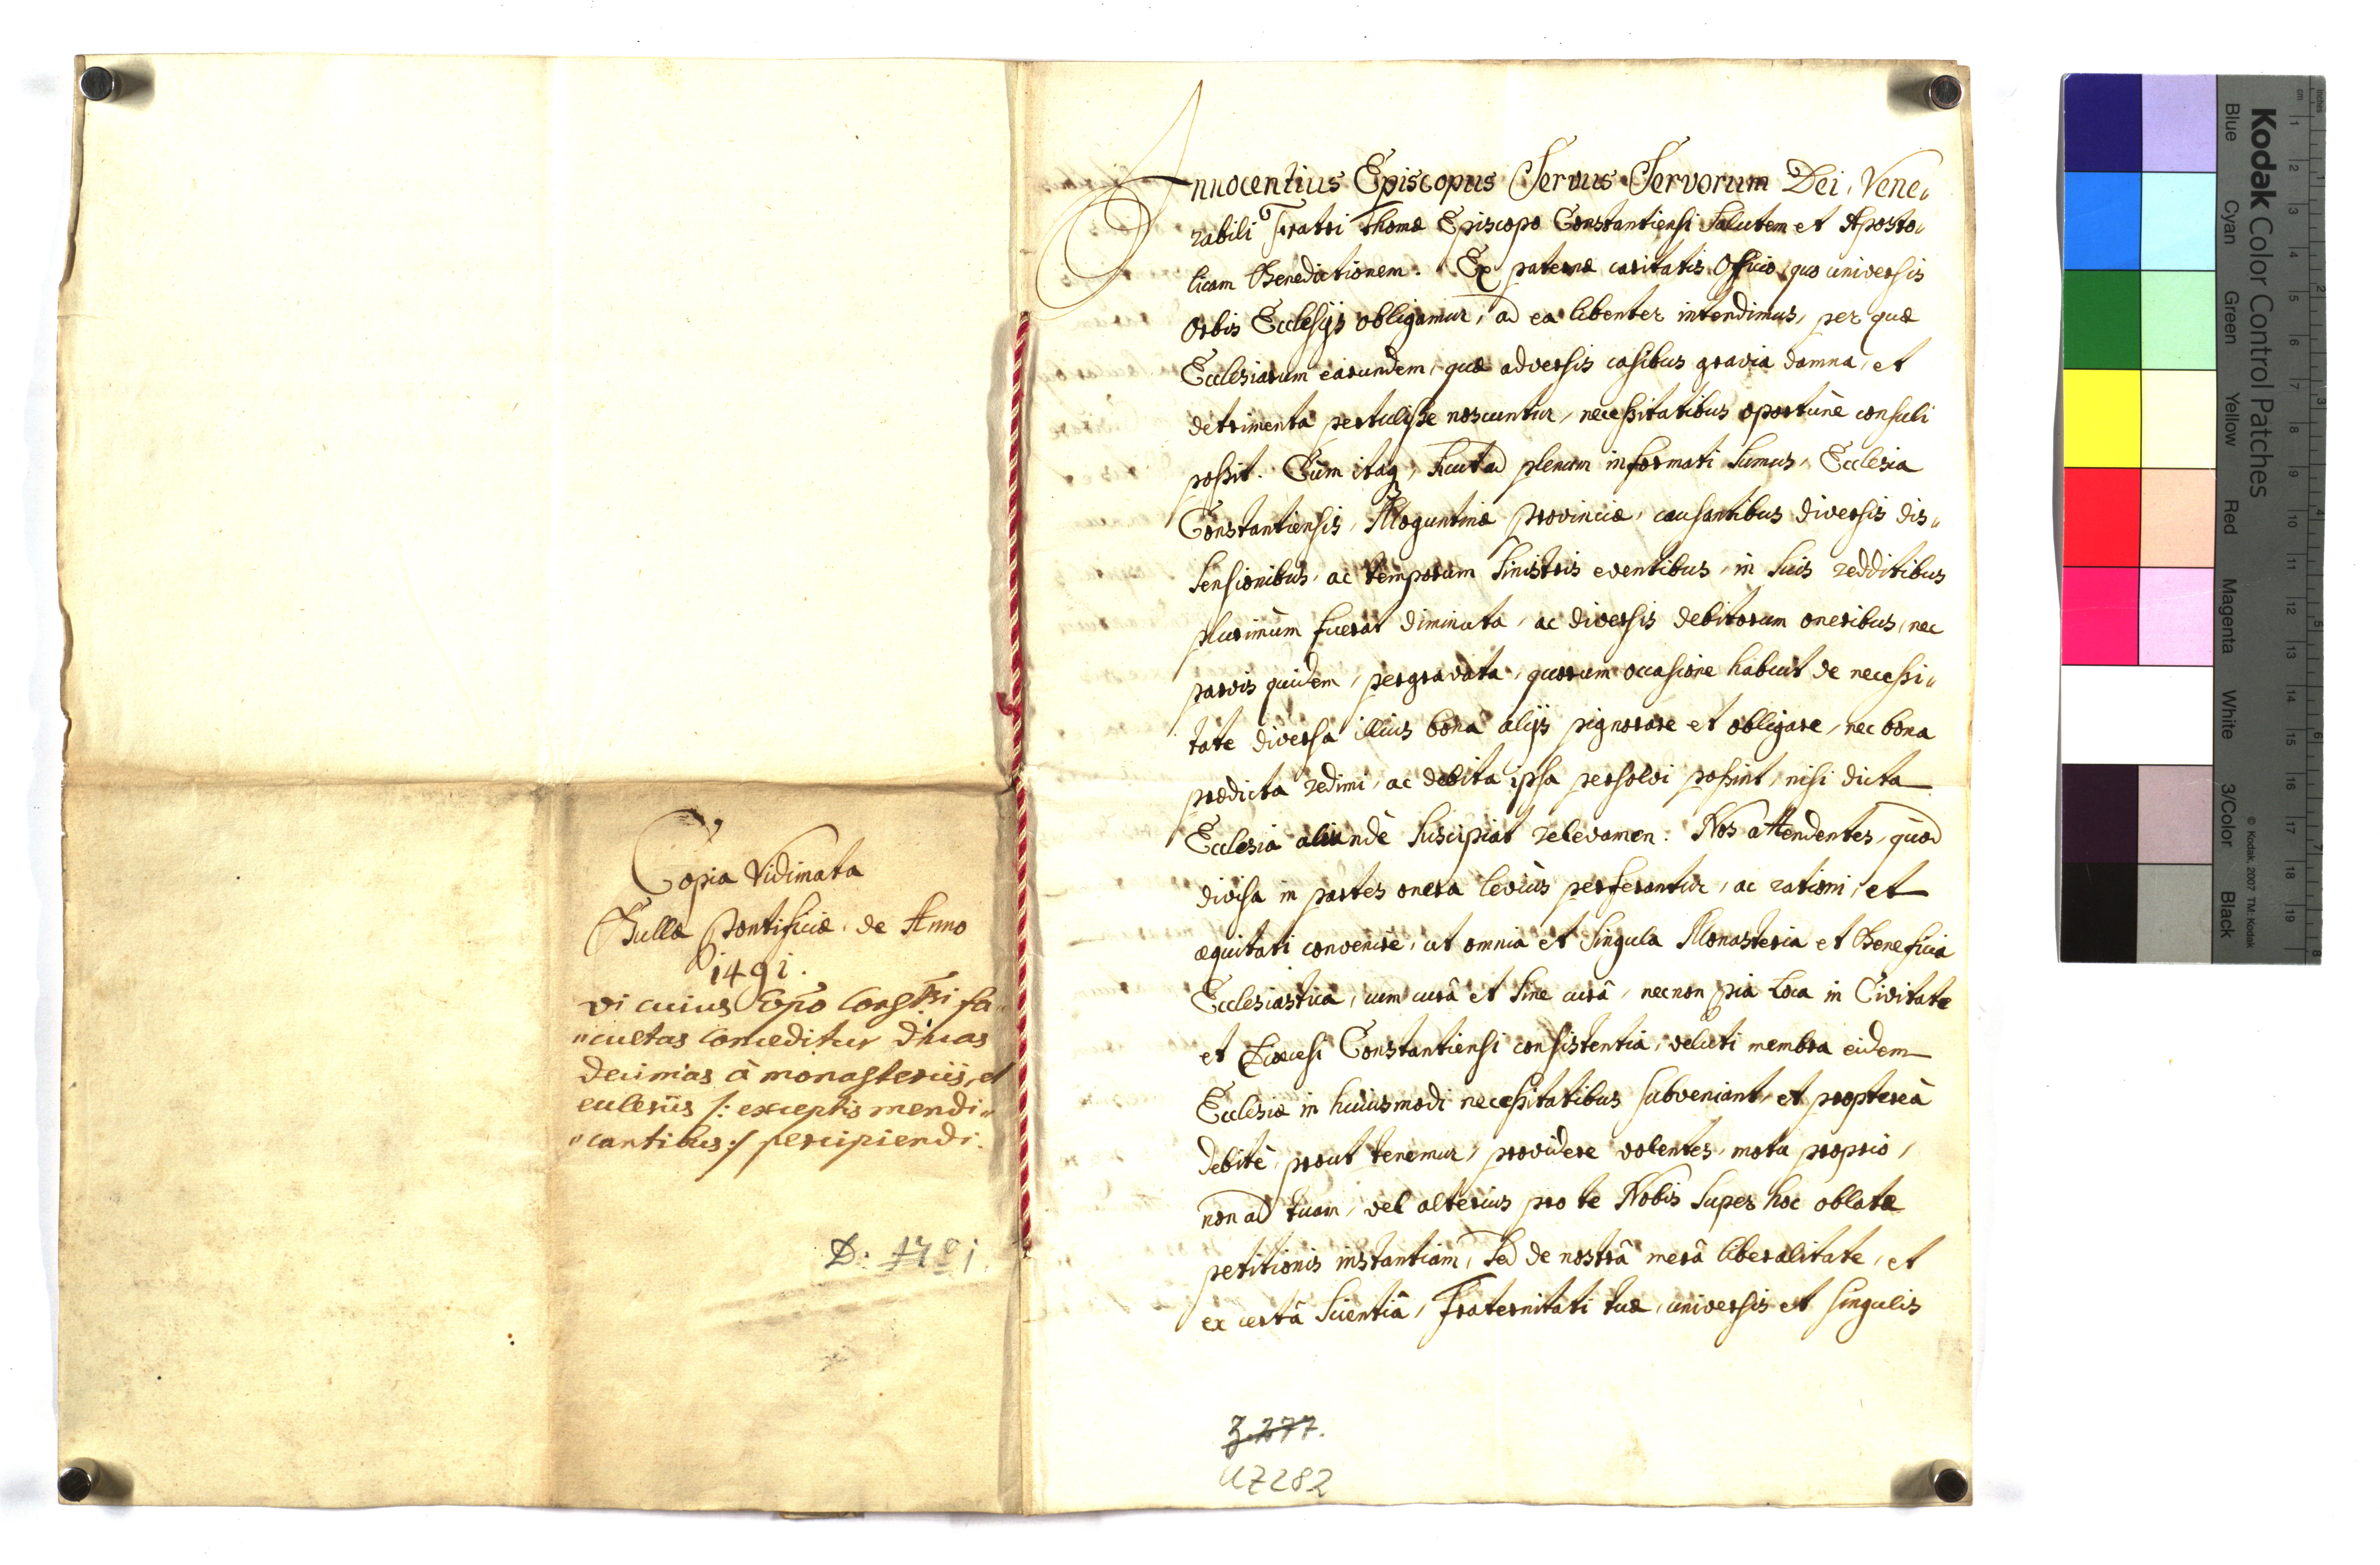 Copia Vidimata
Bullæ Pontificiæ de Anno
1491.
vi cuius Epõ Const:si fa„
„cultas conceditur duas
decimas à monasteriis, et
eccleriis /: exceptis mendi„
„cantibus :/ percipiendi.
D: 1781.
Innocentius Episcopus Servus Servorum Dei, Vene„
rabili Fratri Thomæ Episcopo Constantiensi Salutem et Aposto„
licam Benedictionem. Ex paternæ caritatis Officio, quo universis
Orbis Ecclesijs obligamur, ad ea libenter intendimus, per quæ
Ecclesiarum earundem, quæ adversis casibus gravia damna, et
detrimenta pertulisse noscuntur, necessitatibus oportunè consuli
possit. Cùm itaq, sicut ad plenum informati sumus, Ecclesia
Constantiensis, Moguntinæ Provinciæ, causantibus diversis dis„
sensionibus, ac temporum sinistris eventibus, in suis redditibus
plurimùm fuerat diminuta, ac diversis debitorum oneribus, nec
parvis quidem, pergravata, quorum occasione habuit de necessi„
tate diversa illius bona alijs pignorare et obligare, nec bona
prædicta redimi, ac debita ipsa persolvi possint, nisi dicta
Ecclesia aliundè suscipiat relevamen. Nos attendentes, quòd
divisa in partes onera leviùs perferantur, ac rationi, et
æquitati convenire, ut omnia et singula Monasteria et Beneficia
Ecclesiastica, cum curâ et sine curâ, necnon pia Loca in Civitate
et Diœcesi Constantiensi consistentia, veluti membra eidem
Ecclesiæ in huiusmodi necessitatibus subveniant, et propterea
debitè, prout tenemur, providere volentes, motu proprio,
non ad tuam, vel alterius pro te Nobis super hoc oblatæ
petitionis instantiam, sed de nostrâ merâ liberalitate, et
ex certâ scientiâ, Fraternitati tuæ, universis et singulis
3.277.
U7282
Kodak Color Control Patches
© Kodak, 2007 TM: Kodak
Blue Cyan Green Yellow Red Magenta White 3/Color Black
inches 1 2 3 4 5 6 7 8
cm 1 2 3 4 5 6 7 8 9 10 11 12 13 14 15 16 17 18 19